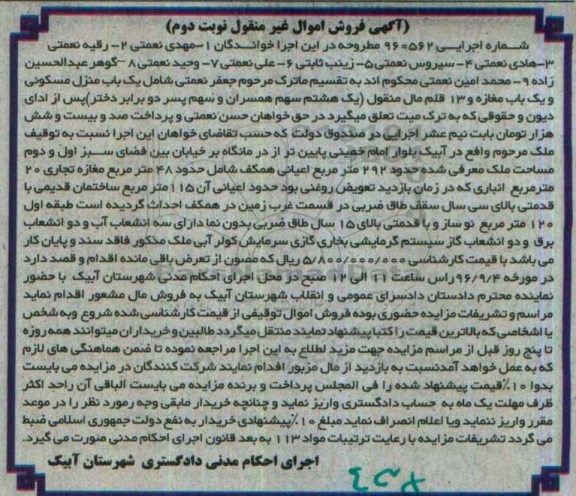 (آگهی فروش اموال غیر منقول نوبت دوم)
شـماره اجرایـی ۹۶۰۵۶۲ مطروحه در این اجرا خوانـدگان ۱-مهدی نعمتی ۲- رقیه نعمتی
۳-هادی نعمتی ۴- سیروس نعمتی۵- زینب ثابتی ۶- علی نعمتی ۷- وحید نعمتی۸ -گوهر عبدالحسین
زاده ۹- محمد امین نعمتی محکوم اند به تقسیم ماترک مرحوم جعفر نعمتی شامل یک باب منزل مسکونی
و یک باب مغازه و ۱۳ قلم مال منقول (یک هشتم سهم همسران و سهم پسر دو برابر دختر)پس از ادای
دیون و حقوقی که به ترک میت تعلق میگیرد در حق خواهان حسن نعمتی و پرداخت صد و بیست و شش
هزار تومان بابت نیم عشر اجرایی در صندوق دولت که حسب تقاضای خواهان این اجرا نسبت به توقیف
ملک مرحوم واقع در آبیک بلوار امام خمینی پایین تر از در مانگاه بر خیابان بین فضای سـبز اول و دوم
مساحت ملک معرفی شده حدود ۲۹۲ متر مربع اعیانی همکف شامل حدود ۴۸ متر مربع مغازه تجاری ۲۰
مترمربع انباری که در زمان بازدید تعویض روغنی بود حدود اعیانی آن ۱۱۵ متر مربع ساختمان قدیمی با
قدمتی بالای سی سال سقف طاق ضربی در قسمت غرب زمین در همکف احداث گردیده است طبقه اول
۱۲۰ متر مربع نو ساز و با قدمتی بالای ۱۵ سال طاق ضربی بدون نما دارای سه انشعاب آب و دو انشعاب
برق و دو انشعاب گاز سیستم گرمایشی بخاری گازی سرمایش کولر آبی ملک مذکور فاقد سند و پایان کار
می باشد با قیمت کارشناسی ۵/۸۰۰/۰۰۰/۰۰۰ ریال که مصون از تعرض باقی مانده اقدام و قصد دارد
در مورخه ۹۶/۹/۴ راس ساعت ۱۱ الی ۱۲ صبح در محل اجرای احکام مدنی شهرستان آبیک با حضور
نماینده محترم دادستان دادسرای عمومی و انقلاب شهرستان آبیک به فروش مال مشعور اقدام نماید
مراسم و تشریفات مزایده حضوری بوده فروش اموال توقیفی از قیمت کارشناسی شده شروع وبه شخص
یا اشخاصی که بالاترین قیمت را کتبا پیشنهاد نمایند منتقل میگردد طالبین و خریداران میتوانند همه روزه
تا پنج روز قبل از مراسم مزایده جهت مزید اطلاع به این اجرا مراجعه نموده تا ضمن هماهنگی های لازم
که به عمل خواهد آمدنسبت به بازدید از مال مزبور اقدام نمایند شرکت کنندگان در مزایده می بایست
بدوا ۱۰٪قیمت پیشنهاد شده را فی المجلس پرداخت و برنده مزایده می بایست الباقی آن راحد اکثر
ظرف مهلت یک ماه به حساب دادگستری واریز نماید و چنانچه خریدار مابقی وجه رمورد نظر را در موعد
مقرر واریز ننماید ویا اعلام انصراف نماید مبلغ ۱۰٪پیشنهادی خریدار به نفع دولت جمهوری اسلامی ضبط
می گردد تشریفات مزایده با رعایت ترتیبات مواد ۱۱۳ به بعد قانون اجرای احکام مدنی صورت می گیرد.
اجرای احکام مدنی دادگستری شهرستان آبیک